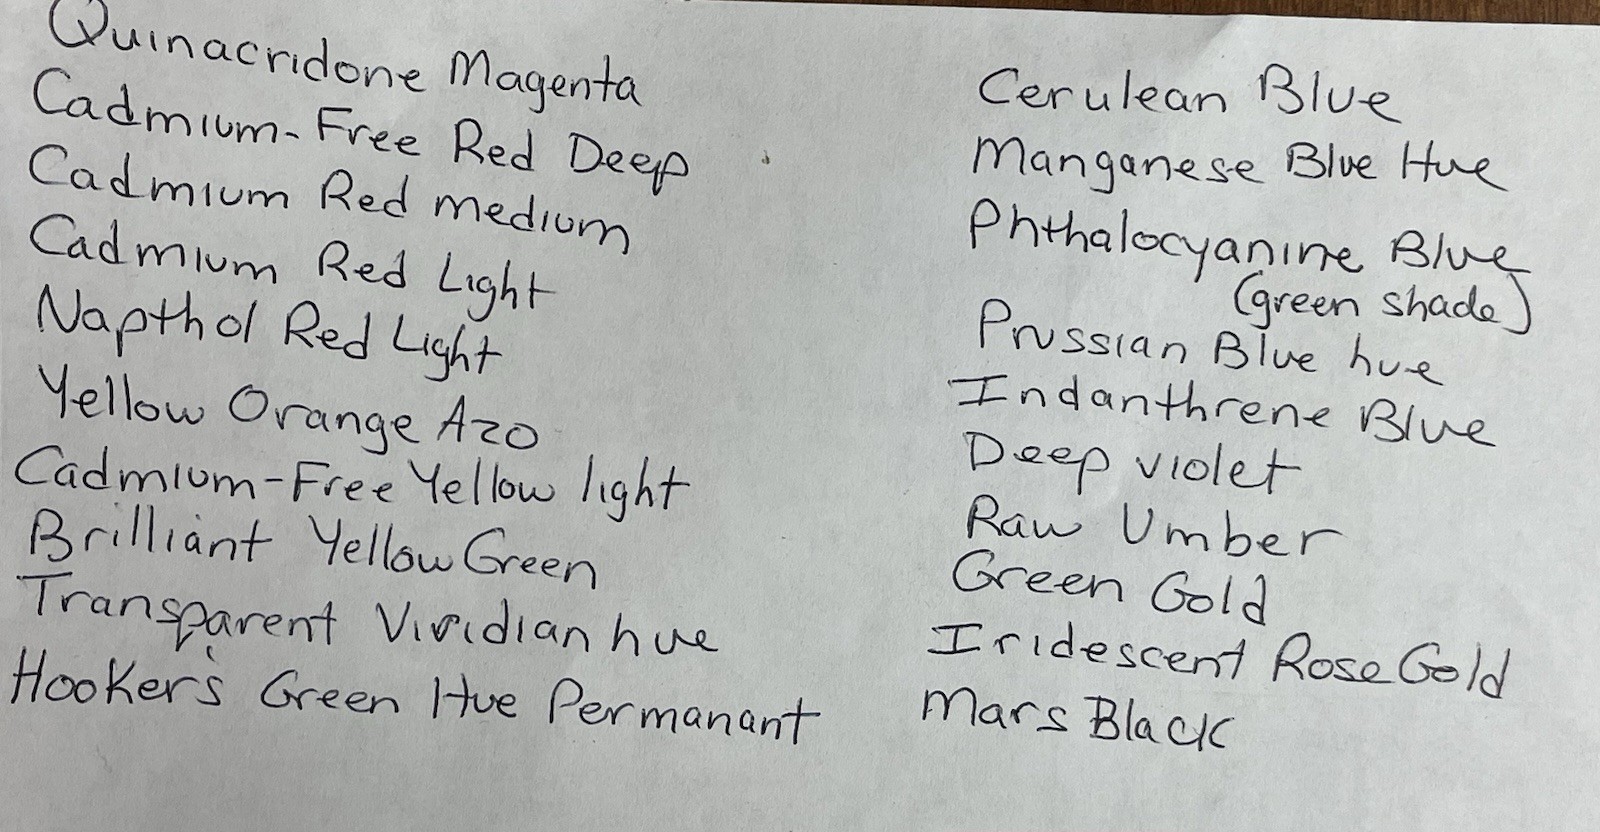 Quinacridone Magenta
Cadmium-Free Red Deep
Cadmium Red medium
Cadmium Red Light
Napthol Red Light
Yellow Orange Azo
Cadmium-Free Yellow light
Brilliant Yellow Green
Transparent Viridian hue
Hooker's Green Hue Permanant
Cerulean Blue
Manganese Blue Hue
Phthalocyanine Blue
(green shade)
Prussian Blue hue
Indanthrene Blue
Deep violet
Raw Umber
Green Gold
Iridescent Rose Gold
Mars Black